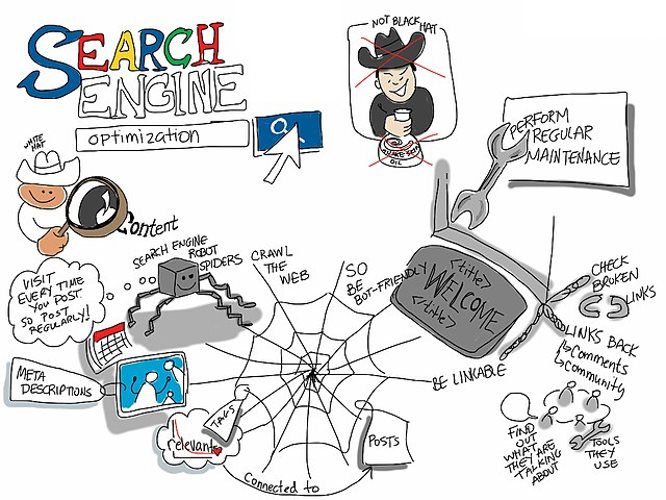 SEARCH
ENGINE
optimization
NOT BLACK HAT
SNAKE
OIL
PERFORM
REGULAR
MAINTENANCE
WHITE
HAT
Content
SEARCH ENGINE
ROBOT
SPIDERS
CRAWL
THE
WEB
SO
BE
BOT-FRIENDLY
<title>
WELCOME
</title>
CHECK
BROKEN
LINKS
LINKS BACK
Comments
community
BE LINKABLE
VISIT
EVERY TIME
YOU POST.
SO POST
REGULARLY!
META
DESCRIPTIONS
TAGS
relevant
POSTS
Connected to
FIND
OUT
WHAT
THEY ARE
TALKING
ABOUT
TOOLS
THEY
USE